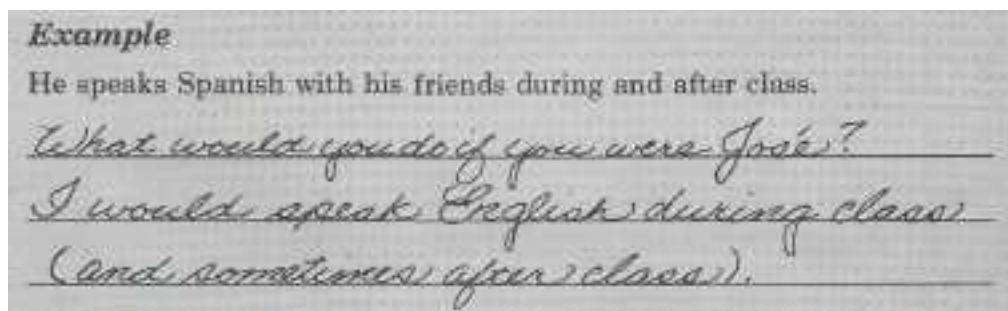 Example
He speaks Spanish with his friends during and after class.
What would you do if you were José?
I would speak English during class
(and sometimes after class).